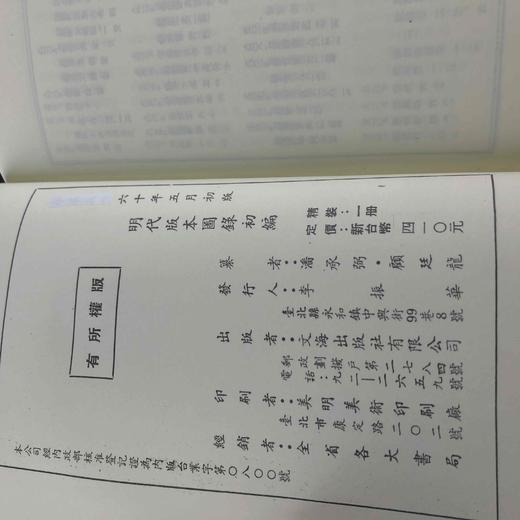 六十年五月初版
明代版本圖錄初編
精裝：一册
定價：新台幣四一〇元
纂者：潘承弼・顧廷龍
發行人：李振華
臺北縣永和鎮中興街99巷8號
出版者：文海出版社有限公司
印刷者：美明美術印刷廠
臺北市康定路二〇二號
經銷者：全省各大書局
本公司經內政部核准登記證為內版台業字第〇八〇〇號
有所權版